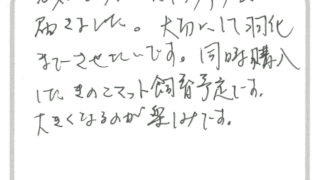 届きました。大切にして羽化
までさせたいです。同時購入
したきのこマット飼育予定です。
大きくなるのが楽しみです。